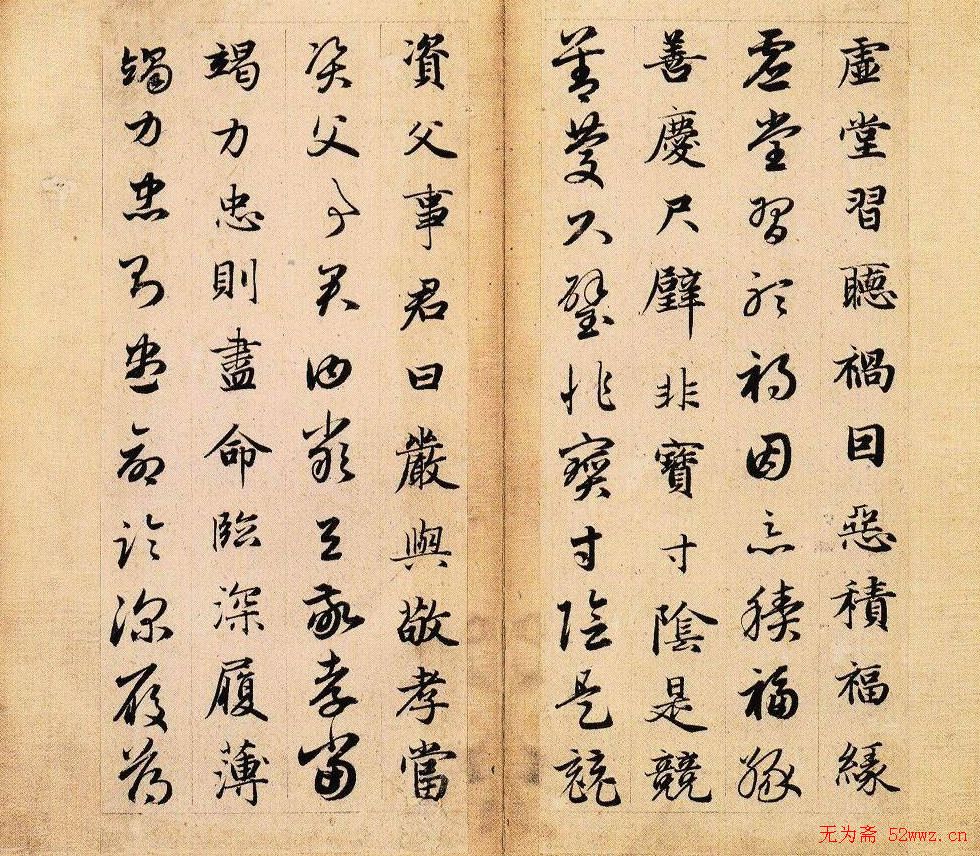 虛堂習聽禍因惡積福緣
虛堂習聽禍因惡積福緣
善慶尺璧非寶寸陰是競
善慶尺璧非寶寸陰是競
資父事君曰嚴與敬孝當
資父事君曰嚴與敬孝當
竭力忠則盡命臨深履薄
竭力忠則盡命臨深履薄
无为斋 52wwz.cn